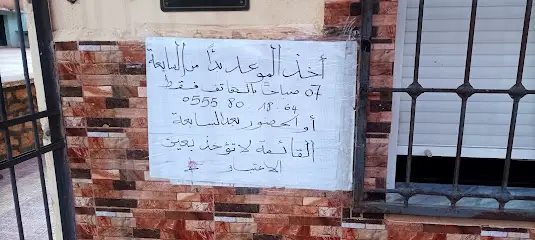 أخذ الموعد بدًا من السابعة
07 صباحا بالهاتف فقط
0555 80 18 64
أو الحضور بعد السابعة
القائمة لا تؤخذ بعين
الاعتبار